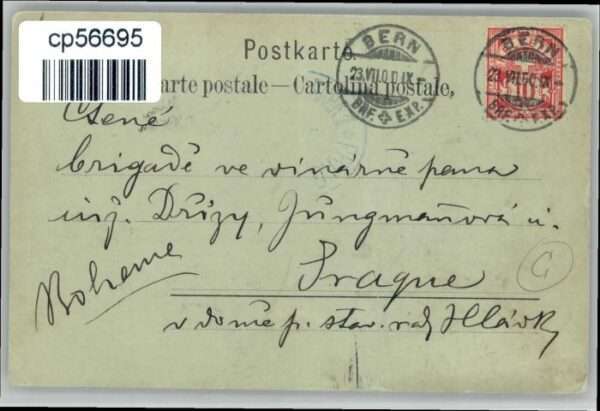 cp56695
Postkarte.
Carte postale — Cartolina postale.
BERN
23.VII.00.IX-
BRF. EXP.
BERN
23.VII.00.IX-
BRF. EXP.
10
Ctěné
brigádě ve vinárně pana
inž. Držizy, Jungmaňova u.
Boheme
Prague
v domě p. stav. rady Hlávky
G